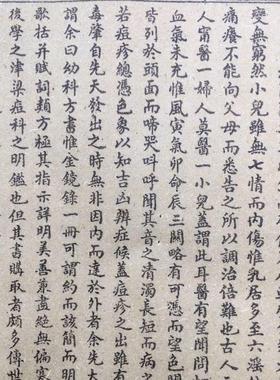 變無窮然小兒雖無七情而內傷惟乳居多至六淫
痛癢不能向父母而悉告之所以調治倍難也古人
人甯醫一婦人莫醫一小兒蓋謂此耳醫有望聞問
血氣未充惟風寅氣卯命辰三關略有可憑而望色明
皆列於頭面而啼哭叫呼聞其音之清濁長短而病
若痘疹總憑色象以知吉凶辨症候蓋痘疹之出雖有
毒肇自先天發出之時無非因內而達於外者余先大
謂余曰幼科方書惟金鏡錄一冊可謂約而該簡而明
歌括并賦詞類方極其指示詳明美善兼盡絕無偏寒
後學之津梁痘科之明鑑也但其書購取者頗多傳世